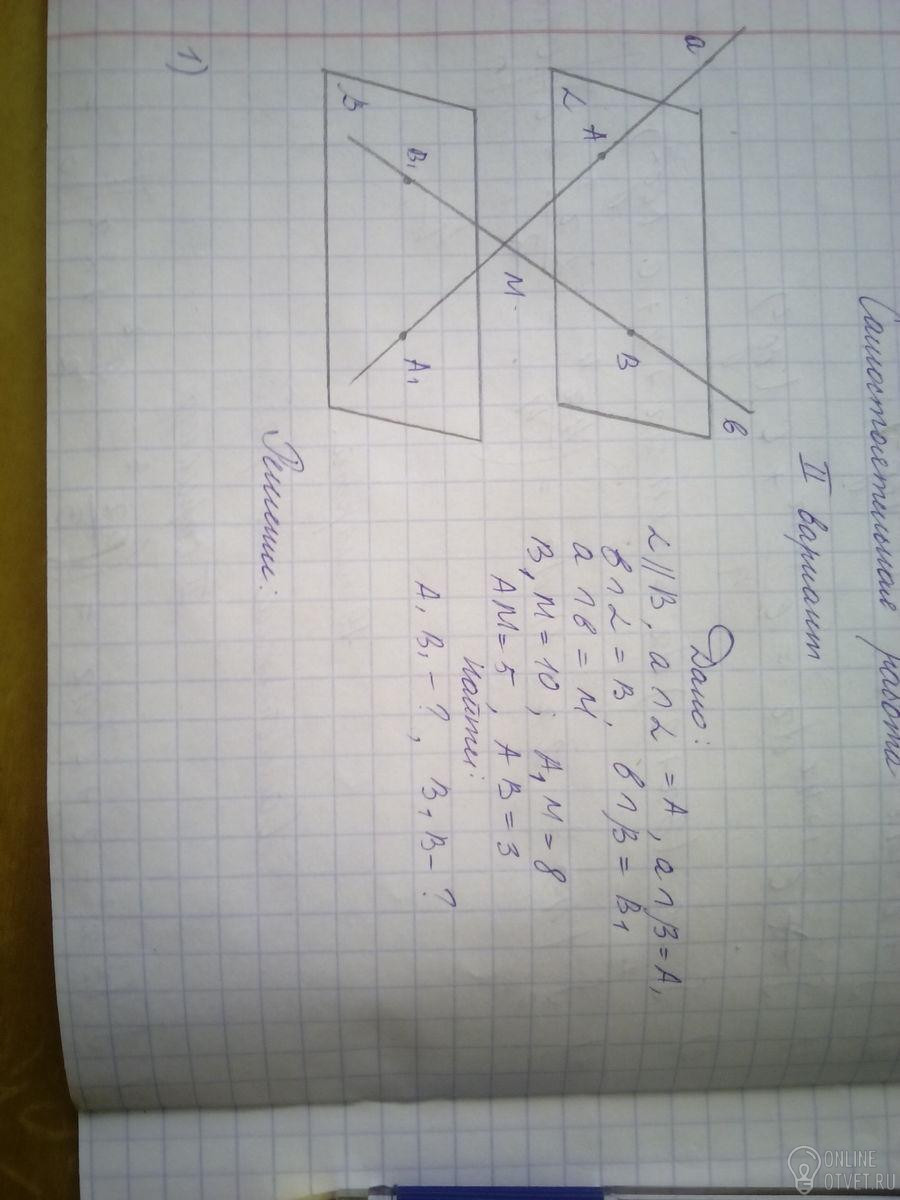 Самостоятельная работа
II вариант
1)
a
в
L
A
B
M
B
B₁
A₁
Дано:
L || B, a ∩ L = A, a ∩ B = A₁
в ∩ L = B, в ∩ B = B₁
a ∩ в = M
B₁M = 10; A₁M = 8
AM = 5, AB = 3
Найти:
A₁B₁ - ?, B₁B - ?
Решение:
ONLINE
OTVET.RU